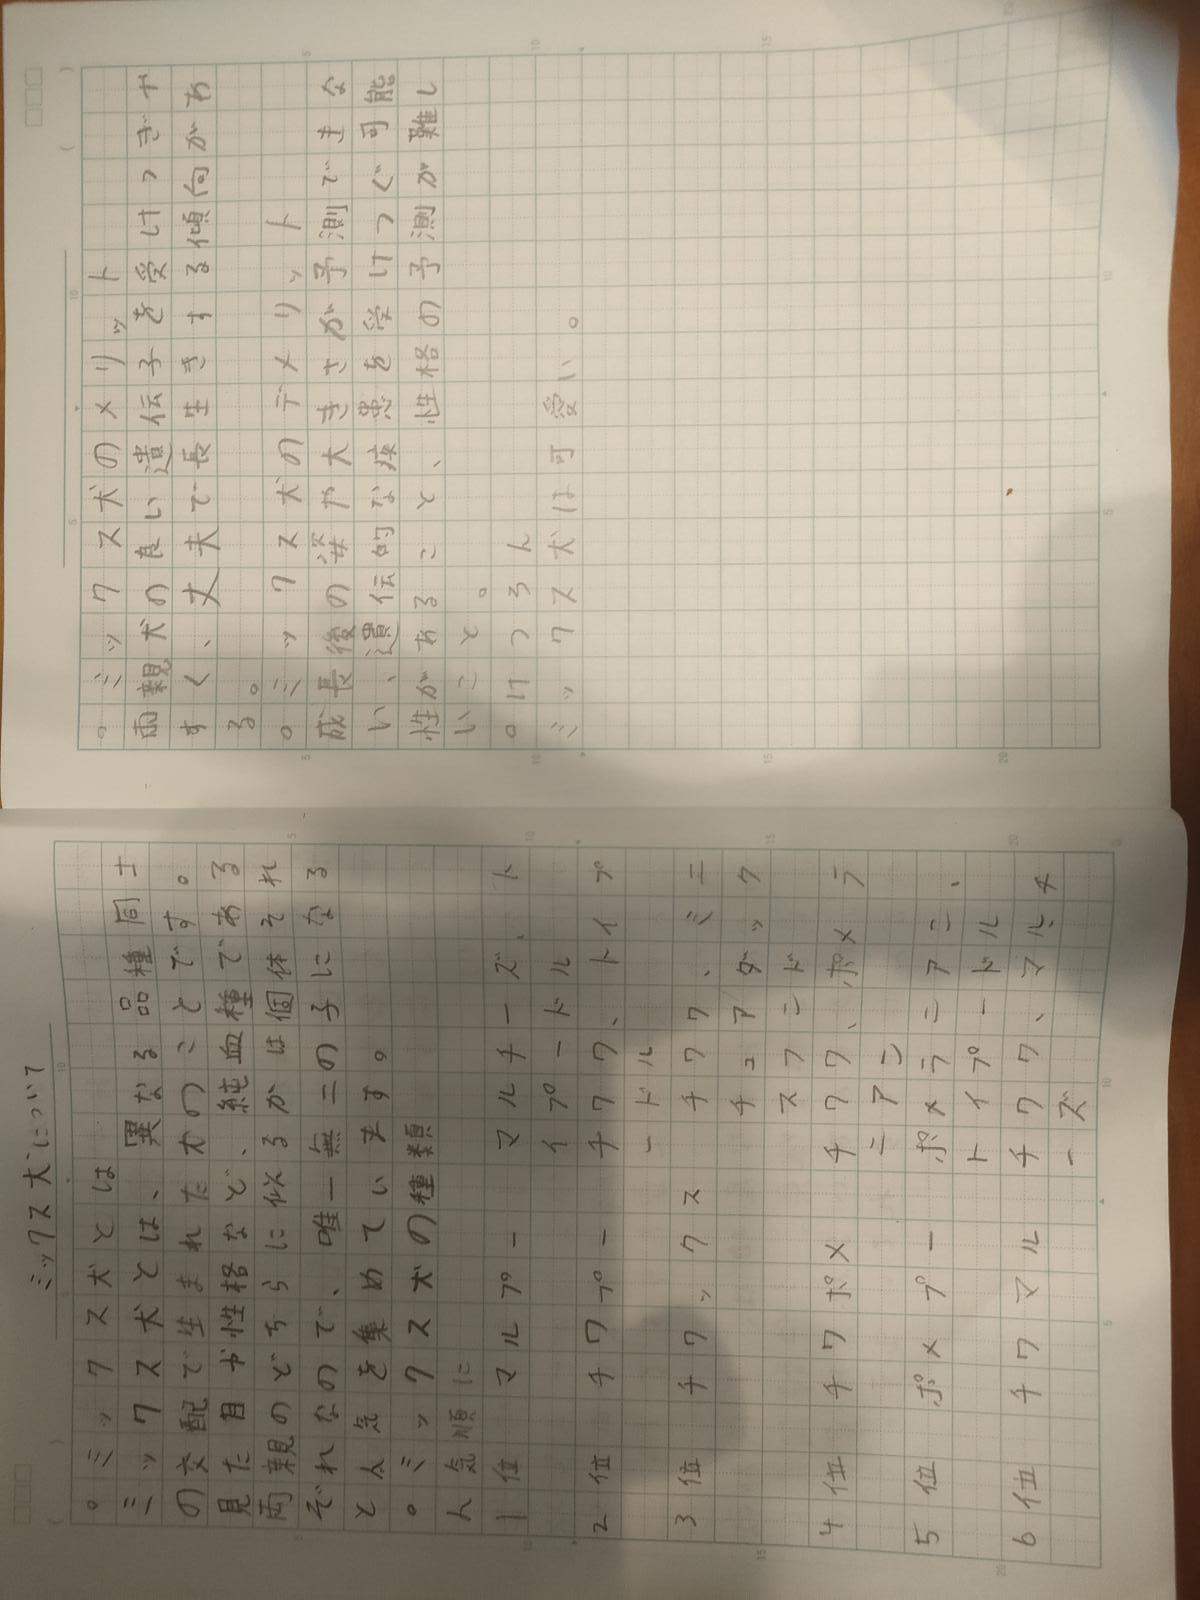 ミックス犬について
。ミックス犬とは
ミックス犬とは、異なる品種同士
の交配で生まれた犬のことです。
見た目や性格など、純血種である
両親のどちらに似るかは個体それ
ぞれなので、唯一無二の子になる
と人気を集めています。
。ミックス犬の種類
人気順に
1位 マルプー マルチーズ、ト
イプードル
2位 チワプー チワワ、トイプ
ードル
3位 チワックス チワワ、ミニ
チュアダック
スフンド
4位 チワポメ チワワ、ポメラ
ニアン
5位 ポメプー ポメラニアニ、
トイプードル
6位 チワマル チワワ、マルチ
ーズ
。ミックス犬のメリット
両親犬の良い遺伝子を受けつぎや
すく、丈夫で長生きする傾向があ
る。
。ミックス犬のデメリット
成長後の姿や大きさが予測できな
い、遺伝的な疾患を受けつぐ可能
性があること、性格の予測が難し
いこと。
。けつろん
ミックス犬は可愛い。